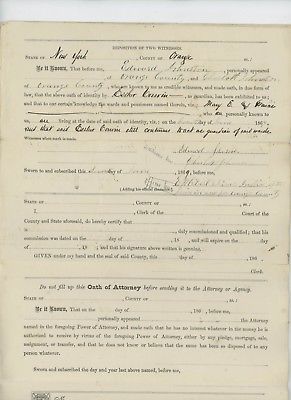 DEPOSITION OF TWO WITNESSES.
STATE OF New York COUNTY OF Orange ss.:
Be it Known, That before me, Edward Johnston personally appeared
of Orange County, and
of Orange County, who are known to me as credible witnesses, and made oath, in due
form of law, that the above oath of identity by Esther Corwin as guardian, and
that to our certain knowledge the wards and pensioners named therein, viz., Mary E.
who are personally known to
us, are living at the date of said oath of identity, viz., on the day of 186
and that said Esther Corwin still continues to act as guardian of said wards.
Edward
Sworn to and subscribed this day of 186 , before me,
(Adding his official
STATE OF , COUNTY OF , ss.:
I, , Clerk of the Court of the
County and State aforesaid, do hereby certify that
is duly commissioned and qualified; that his
commission was dated on the day of 18 and will expire on the
day of , 18 , and that his signature above written is genuine.
GIVEN under my hand and the seal of said County, this day of , 186 .
Clerk.
Do not fill up this Oath of Attorney before sending it to the Attorney or Agency.
STATE OF , COUNTY OF , ss.:
Be it Known, That on the day of 186 , before me,
personally appeared the Attorney
named in the foregoing Power of Attorney, and made oath that he has no interest in the money he is
authorized to receive by virtue of the foregoing Power of Attorney, either by any pledge, mortgage, sale,
assignment, or transfer, and that he does not know or believe that the same has been so disposed of to any
person whatever.
Sworn and subscribed the day and year last above named, before me,